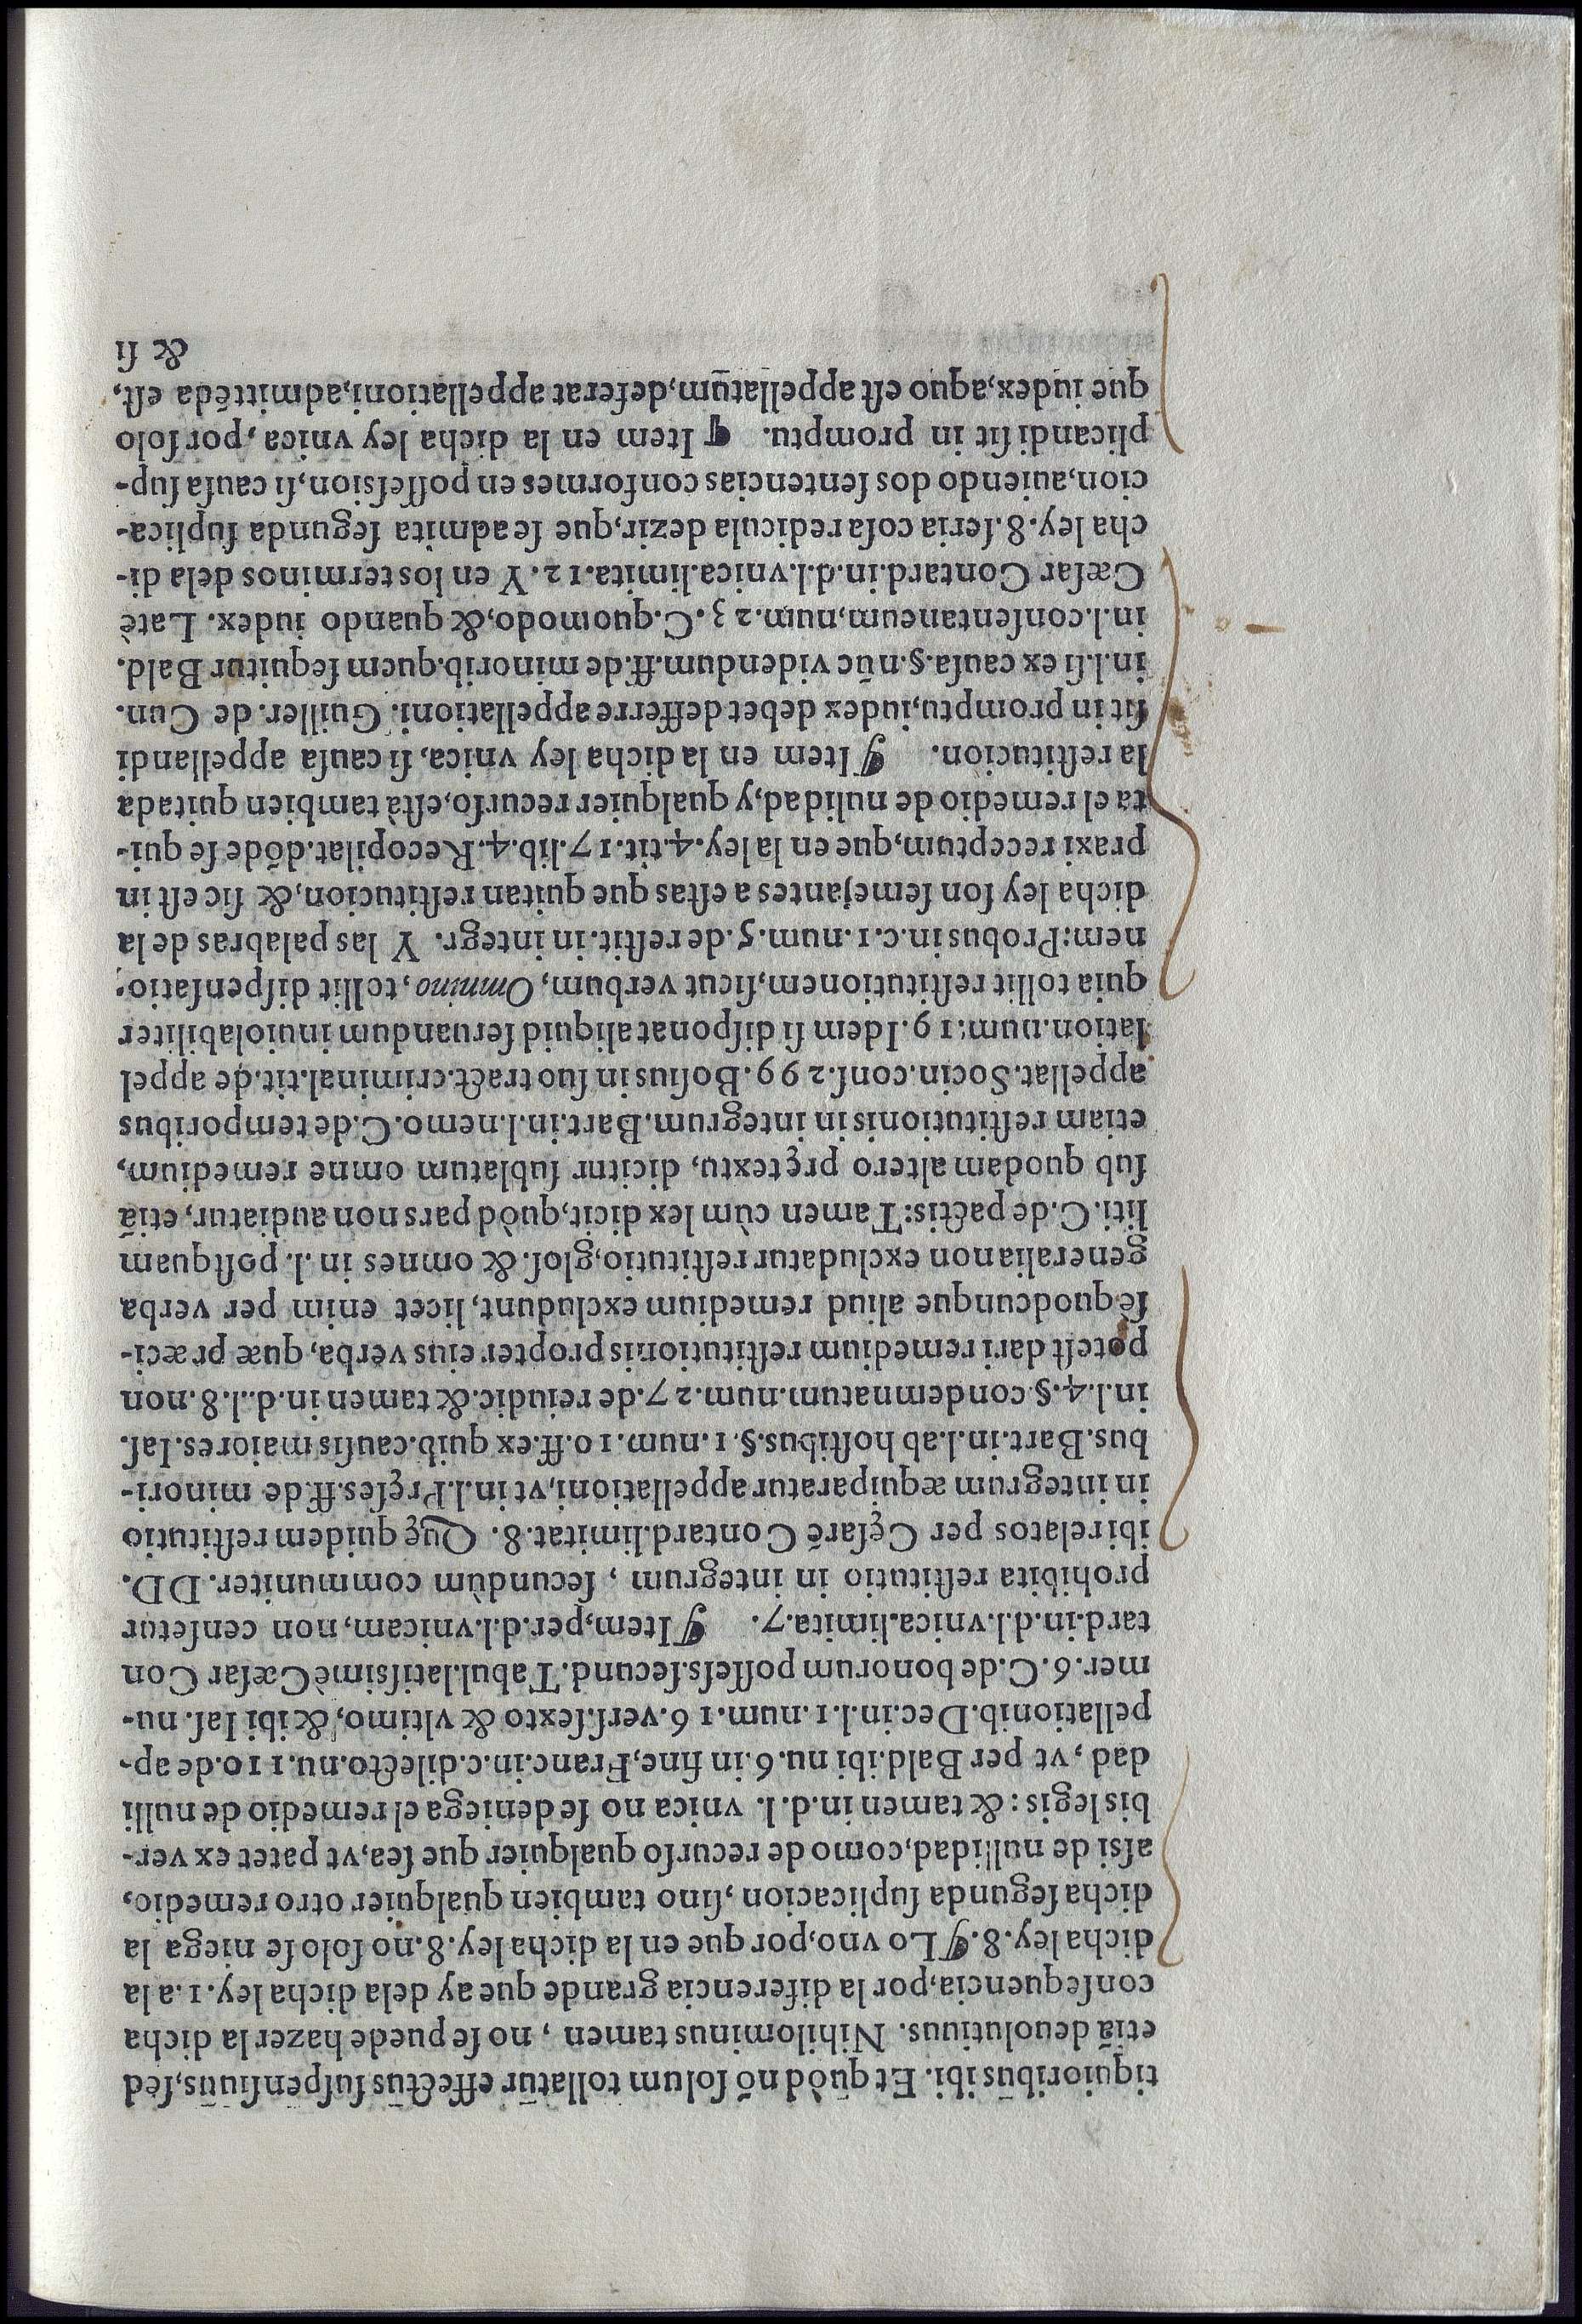 tiquioribus ibi. Et quòd nõ solum tollatur effectus suspensiuus, sed
etiã deuolutiuus. Nihilominus tamen, no se puede hazer la dicha
consequencia, por la diferencia grande que ay dela dicha ley. 1. a la
dicha ley. 8. ¶ Lo vno, por que en la dicha ley. 8. no solo se niega la
dicha segunda suplicacion, sino tambien qualquier otro remedio,
assi de nullidad, como de recurso qualquier que sea, vt patet ex ver-
bis legis: & tamen in. d. l. vnica no se deniega el remedio de nulli
dad, vt per Bald. ibi nu. 6. in fine, Franc. in. c. dilecto. nu. 110. de ap-
pellationib. Dec. in. l. 1. num. 16. vers. sexto & vltimo, & ibi Ias. nu-
mer. 6. C. de bonorum possess. secund. Tabul. latissimè Cæsar Con
tard. in. d. l. vnica. limita. 7. ¶ Item, per. d. l. vnicam, non censetur
prohibita restitutio in integrum, secundùm communiter. DD.
ibi relatos per Cęsarẽ Contard. limitat. 8. Quę quidem restitutio
in integrum æquiparatur appellationi, vt in. l. Pręses. ff. de minori-
bus. Bart. in. l. ab hostibus. §. 1. num. 10. ff. ex quib. causis maiores. Ias.
in. l. 4. §. condemnatum. num. 27. de re iudic. & tamen in. d. l. 8. non
potest dari remedium restitutionis propter eius verba, quæ præci-
sè quodcunque aliud remedium excludunt, licet enim per verba
generalia non excludatur restitutio, glos. & omnes in. l. postquam
liti. C. de pactis: Tamen cùm lex dicit, quòd pars non audiatur, etiã
sub quodam altero prętextu, dicitur sublatum omne remedium,
etiam restitutionis in integrum. Bart. in. l. nemo. C. de temporibus
appellat. Socin. cons. 299. Bosius in suo tract. criminal. tit. de appel
lation. num: 19. Idem si disponat aliquid seruandum inuiolabiliter
quia tollit restitutionem, sicut verbum, Omnino, tollit dispensatio-
nem: Probus in. c. 1. num. 5. de restit. in integr. Y las palabras de la
dicha ley son semejantes a estas que quitan restitucion, & sic est in
praxi receptum, que en la ley. 4. tit. 17. lib. 4. Recopilat. dõde se qui-
ta el remedio de nulidad, y qualquier recurso, està tambien quitada
la restitucion. ¶ Item en la dicha ley vnica, si causa appellandi
sit in promptu, iudex debet defferre appellationi. Guiller. de Cun.
in. l. si ex causa. §. nũc videndum. ff. de minorib. quem sequitur Bald.
in. l. consentaneum, num. 23. C. quomodo, & quando iudex. Latè
Cæsar Contard. in. d. l. vnica. limita. 12. Y en los terminos dela di-
cha ley. 8. seria cosa redicula dezir, que se admita segunda suplica-
cion, auiendo dos sentencias conformes en possession, si causa sup-
plicandi sit in promptu. ¶ Item en la dicha ley vnica, por solo
que iudex, a quo est appellatum, deferat appellationi, admittẽda est,
& si